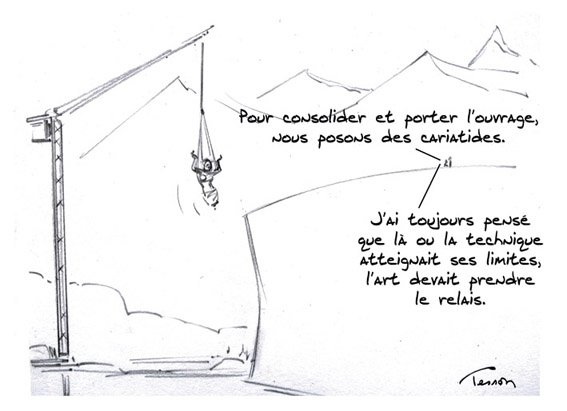 Pour consolider et porter l'ouvrage,
nous posons des cariatides.
J'ai toujours pensé
que là ou la technique
atteignait ses limites,
l'art devait prendre
le relais.
Tesson